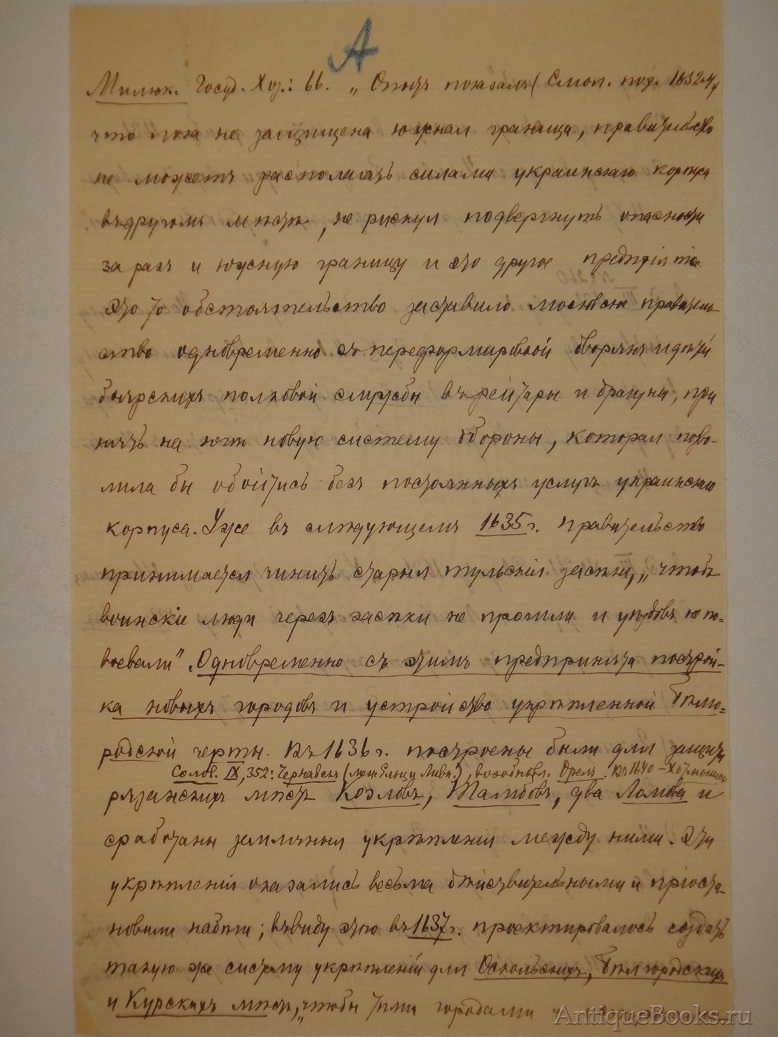 А
Милюк. Госуд. Хоз.: 66. „Опытъ показалъ (Смол. пох. 1632-4),
что пока не защищена южная граница, правительство
не можетъ располагать силами украинскаго корпуса
въ другомъ мѣстѣ, не рискуя подвергнуть опасности
за разъ и южную границу и это другое предпріятіе.
Это то обстоятельство заставило московское правитель-
ство одновременно съ переформировкой дворянъ и дѣтей
боярскихъ полковой службы въ рейтары и драгуны, при
нять на югѣ новую систему обороны, которая позво-
лила бы обойтись безъ постоянныхъ услугъ украинскаго
корпуса. Уже въ слѣдующемъ 1635 г. правительство
принимается чинить старыя тульскія засѣки, „чтобъ
воинскіе люди черезъ засѣки не прошли и уѣздовъ не по-
воевали". Одновременно съ этимъ предпринята построй-
ка новыхъ городовъ и устройство укрѣпленной Бѣлго-
родской черты. Въ 1636 г. построены были для защиты
Солов. IX, 352: Чернавскъ (меж Ельца Ливн.), возобновл. Орелъ. Въ 1640 - Хотмышск
рязанскихъ мѣстъ Козловъ, Тамбовъ, два Ломова и
сработаны земляныя укрѣпленія между ними. Эти
укрѣпленія оказались весьма дѣйствительными и пріоста-
новили набѣги; въ виду этого въ 1637 г. проектировалось создать
такую же систему укрѣпленій для Оскольскихъ, Бѣлгородскихъ
и Курскихъ мѣстъ, „чтобы тѣми городами и
AntiqueBooks.ru